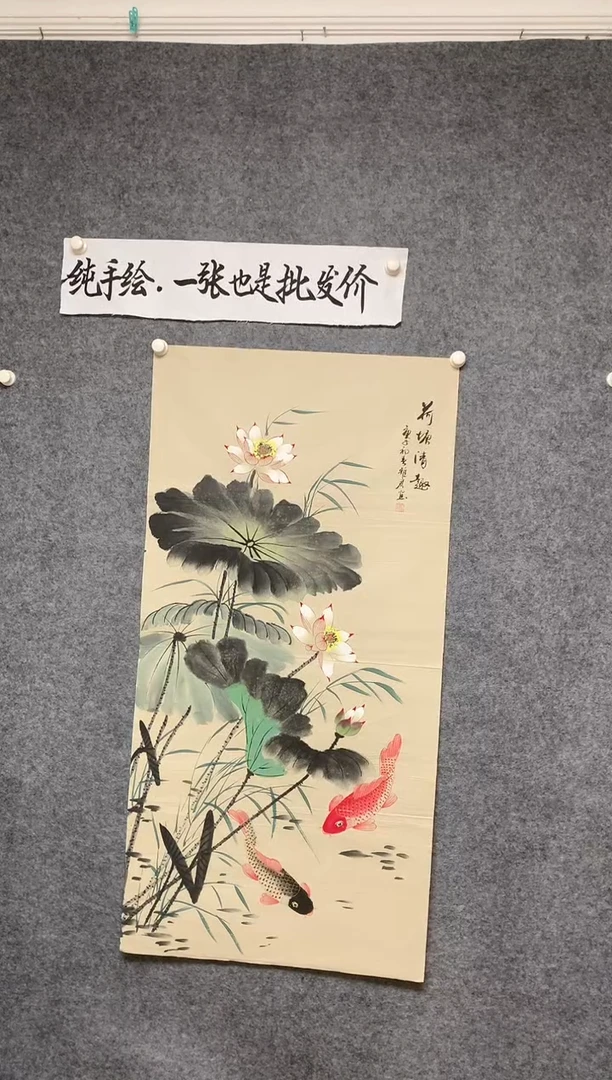 纯手绘.一张也是批发价
荷塘清趣